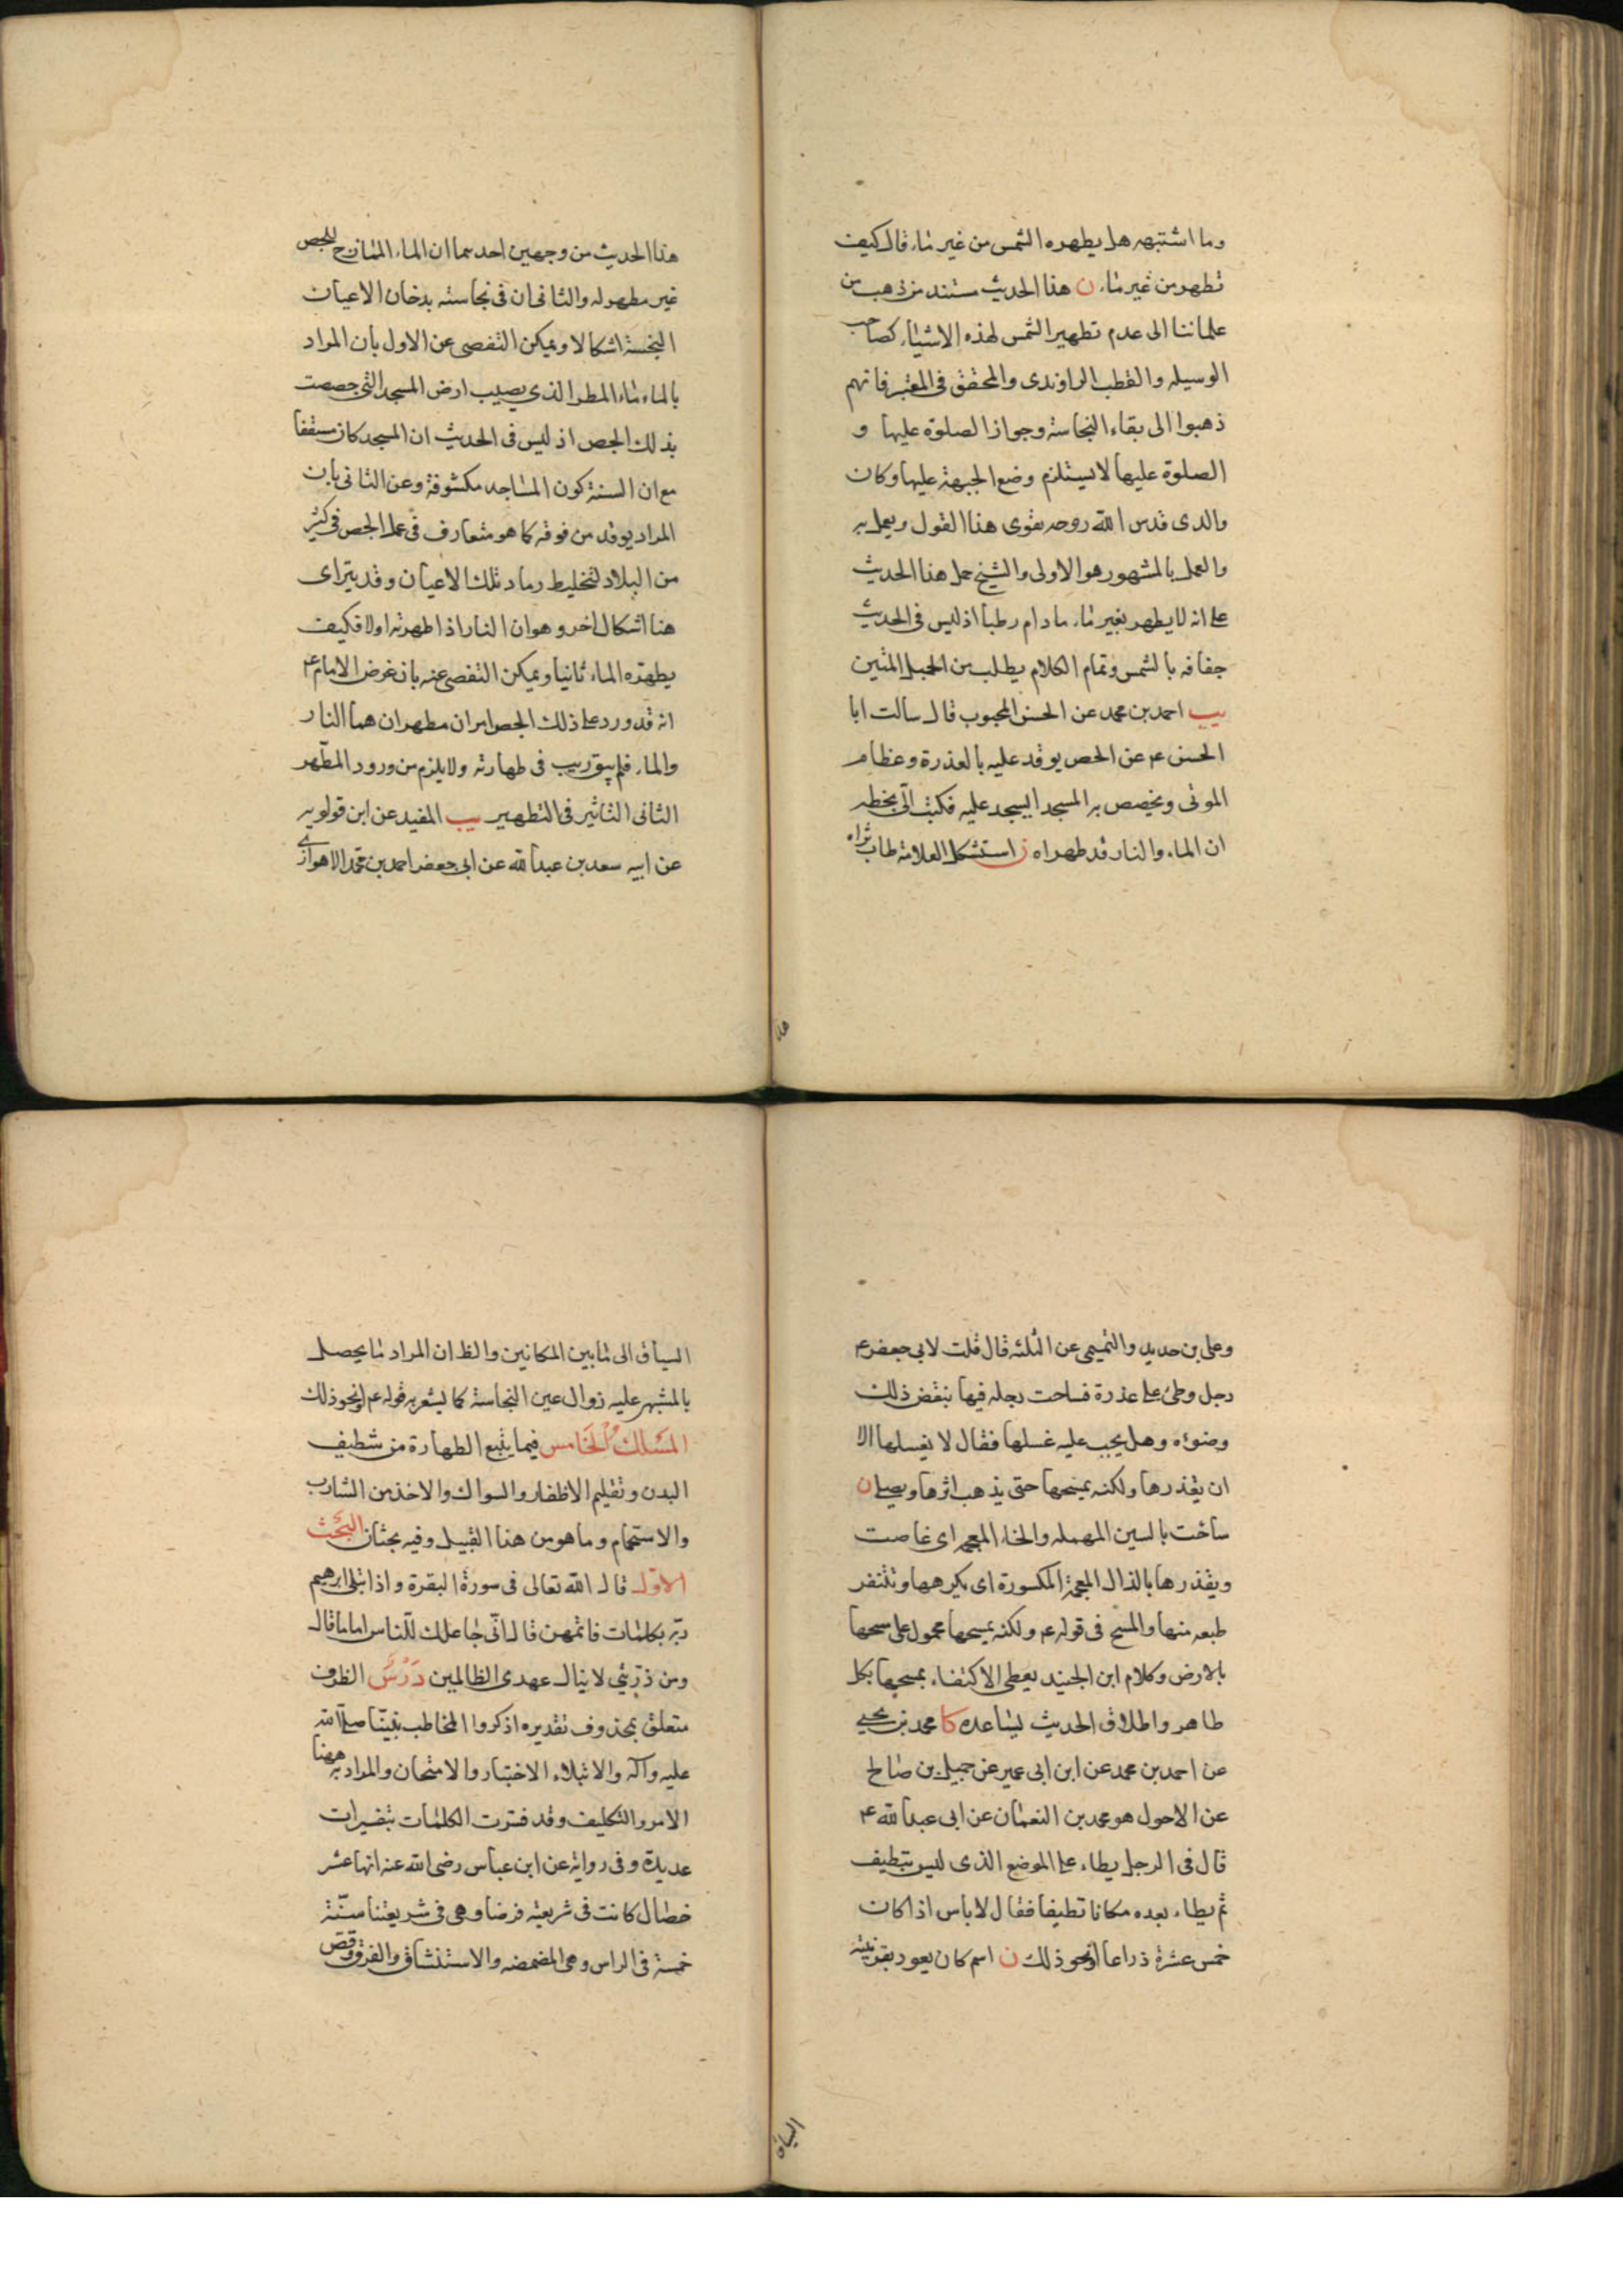 وما اشتبهه هل يطهره الشمس من غير ماء قال كيف
تطهر من غير ماء ن هذا الحديث مستند من ذهب من
علمائنا الى عدم تطهير الشمس لهذه الاشياء كصاحب
الوسيله والقطب الراوندى والمحقق فى المعتبر فانهم
ذهبوا الى بقاء النجاسة وجواز الصلوة عليها و
الصلوة عليها لا يستلزم وضع الجبهة عليها وكان
والدى قدس الله روحه يقوى هذا القول ويعمل به
والعمل بالمشهور هو الاولى والشيخ حمل هذا الحديث
على انه لا يطهر بغير ماء ما دام رطبا اذ ليس فى الحديث
جفافه بالشمس وتمام الكلام يطلب من الحبل المتين
يب احمد بن محمد عن الحسن المحبوب قال سالت ابا
الحسن ع عن الجص يوقد عليه بالعذرة وعظام
الموتى ويخصص به المسجد ايسجد عليه فكتب الىّ بخطه
ان الماء والنار قد طهراه ن استشكل العلامة طاب ثراه
هذا
هذا الحديث من وجهين احدهما ان الماء الممازج للجص
غير مطهر له والثانى ان فى نجاسته بدخان الاعيان
النجسة اشكالا ويمكن التفصى عن الاول بان المراد
بالماء ماء المطر الذى يصيب ارض المسجد التى جصصت
بذلك الجص اذ ليس فى الحديث ان المسجد كان مسقفا
مع ان السنة كون المساجد مكشوفة وعن الثانى بان
المراد يوقد من فوقه كما هو متعارف فى عمل الجص فى كثير
من البلاد لتخليط رماد تلك الاعيان وقد يتراى
هنا اشكال اخر وهو ان النار اذا طهرته اولا فكيف
يطهره الماء ثانيا ويمكن التفصى عنه بان غرض الامام ع
انه قد ورد على ذلك الجص امران مطهران هما النار
والماء فلم يبق ريب فى طهارته ولا يلزم من ورود المطهّر
الثانى التاثير فى التطهير يب المفيد عن ابن قولويه
عن ابيه سعد بن عبد الله عن ابى جعفر احمد بن محمد الاهوازى
وعلى بن حديد والتميمى عن الثلثه قال قلت لابى جعفر ع
رجل وطئ على عذرة فساخت رجله فيها ينقض ذلك
وضوءه وهل يجب عليه غسلها فقال لا يغسلها الا
ان يقذرها ولكنه يمسحها حتى يذهب اثرها ويصلى ن
ساخت بالسين المهمله والخاء المعجم اى غاصت
ويقذرها بالذال المعجمة المكسورة اى يكرهها وتتنفر
طبعه منها والمسح فى قوله ع ولكنه يمسحها محمول على مسحها
بالارض وكلام ابن الجنيد يعطى الاكتفاء بمسحها بكل
طاهر واطلاق الحديث يساعده كا محمد بن يحيى
عن احمد بن محمد عن ابن ابى عمير عن جميل بن صالح
عن الاحول هو محمد بن النعمان عن ابى عبد الله ع
قال فى الرجل يطاء على الموضع الذى ليس بنظيف
ثم يطاء بعده مكانا نظيفا فقال لا باس اذا كان
خمس عشرة ذراعا او نحو ذلك ن اسم كان يعود بقرينة
السياق
السياق الى ما بين المكانين والظ ان المراد ما يحصل
بالمشى عليه زوال عين النجاسة كما يشعر به قوله ع او نحو ذلك
المسلك الخامس فيما يتبع الطهارة من تنظيف
البدن وتقليم الاظفار والسواك والاخذ من الشارب
والاستحمام وما هو من هذا القبيل وفيه بحثان البحث
الاول قال الله تعالى فى سورة البقرة واذ ابتلى ابرهيم
ربّه بكلمات فاتمهن قال انّى جاعلك للناس اماما قال
ومن ذرّيتى لا ينال عهدى الظالمين دَرْسٌ الظرف
متعلق بمحذوف تقديره اذكر والمخاطب نبيّنا صلّى الله
عليه وآله والابتلاء الاختبار والامتحان والمراد به هنا
الامر والتكليف وقد فسّرت الكلمات بتفسيرات
عديدة وفى رواية عن ابن عباس رضى الله عنه انها عشر
خصال كانت فى شريعته فرضا وهى فى شريعتنا سنّة
خمسة فى الراس وهى المضمضه والاستنشاق والفرق وقصّ